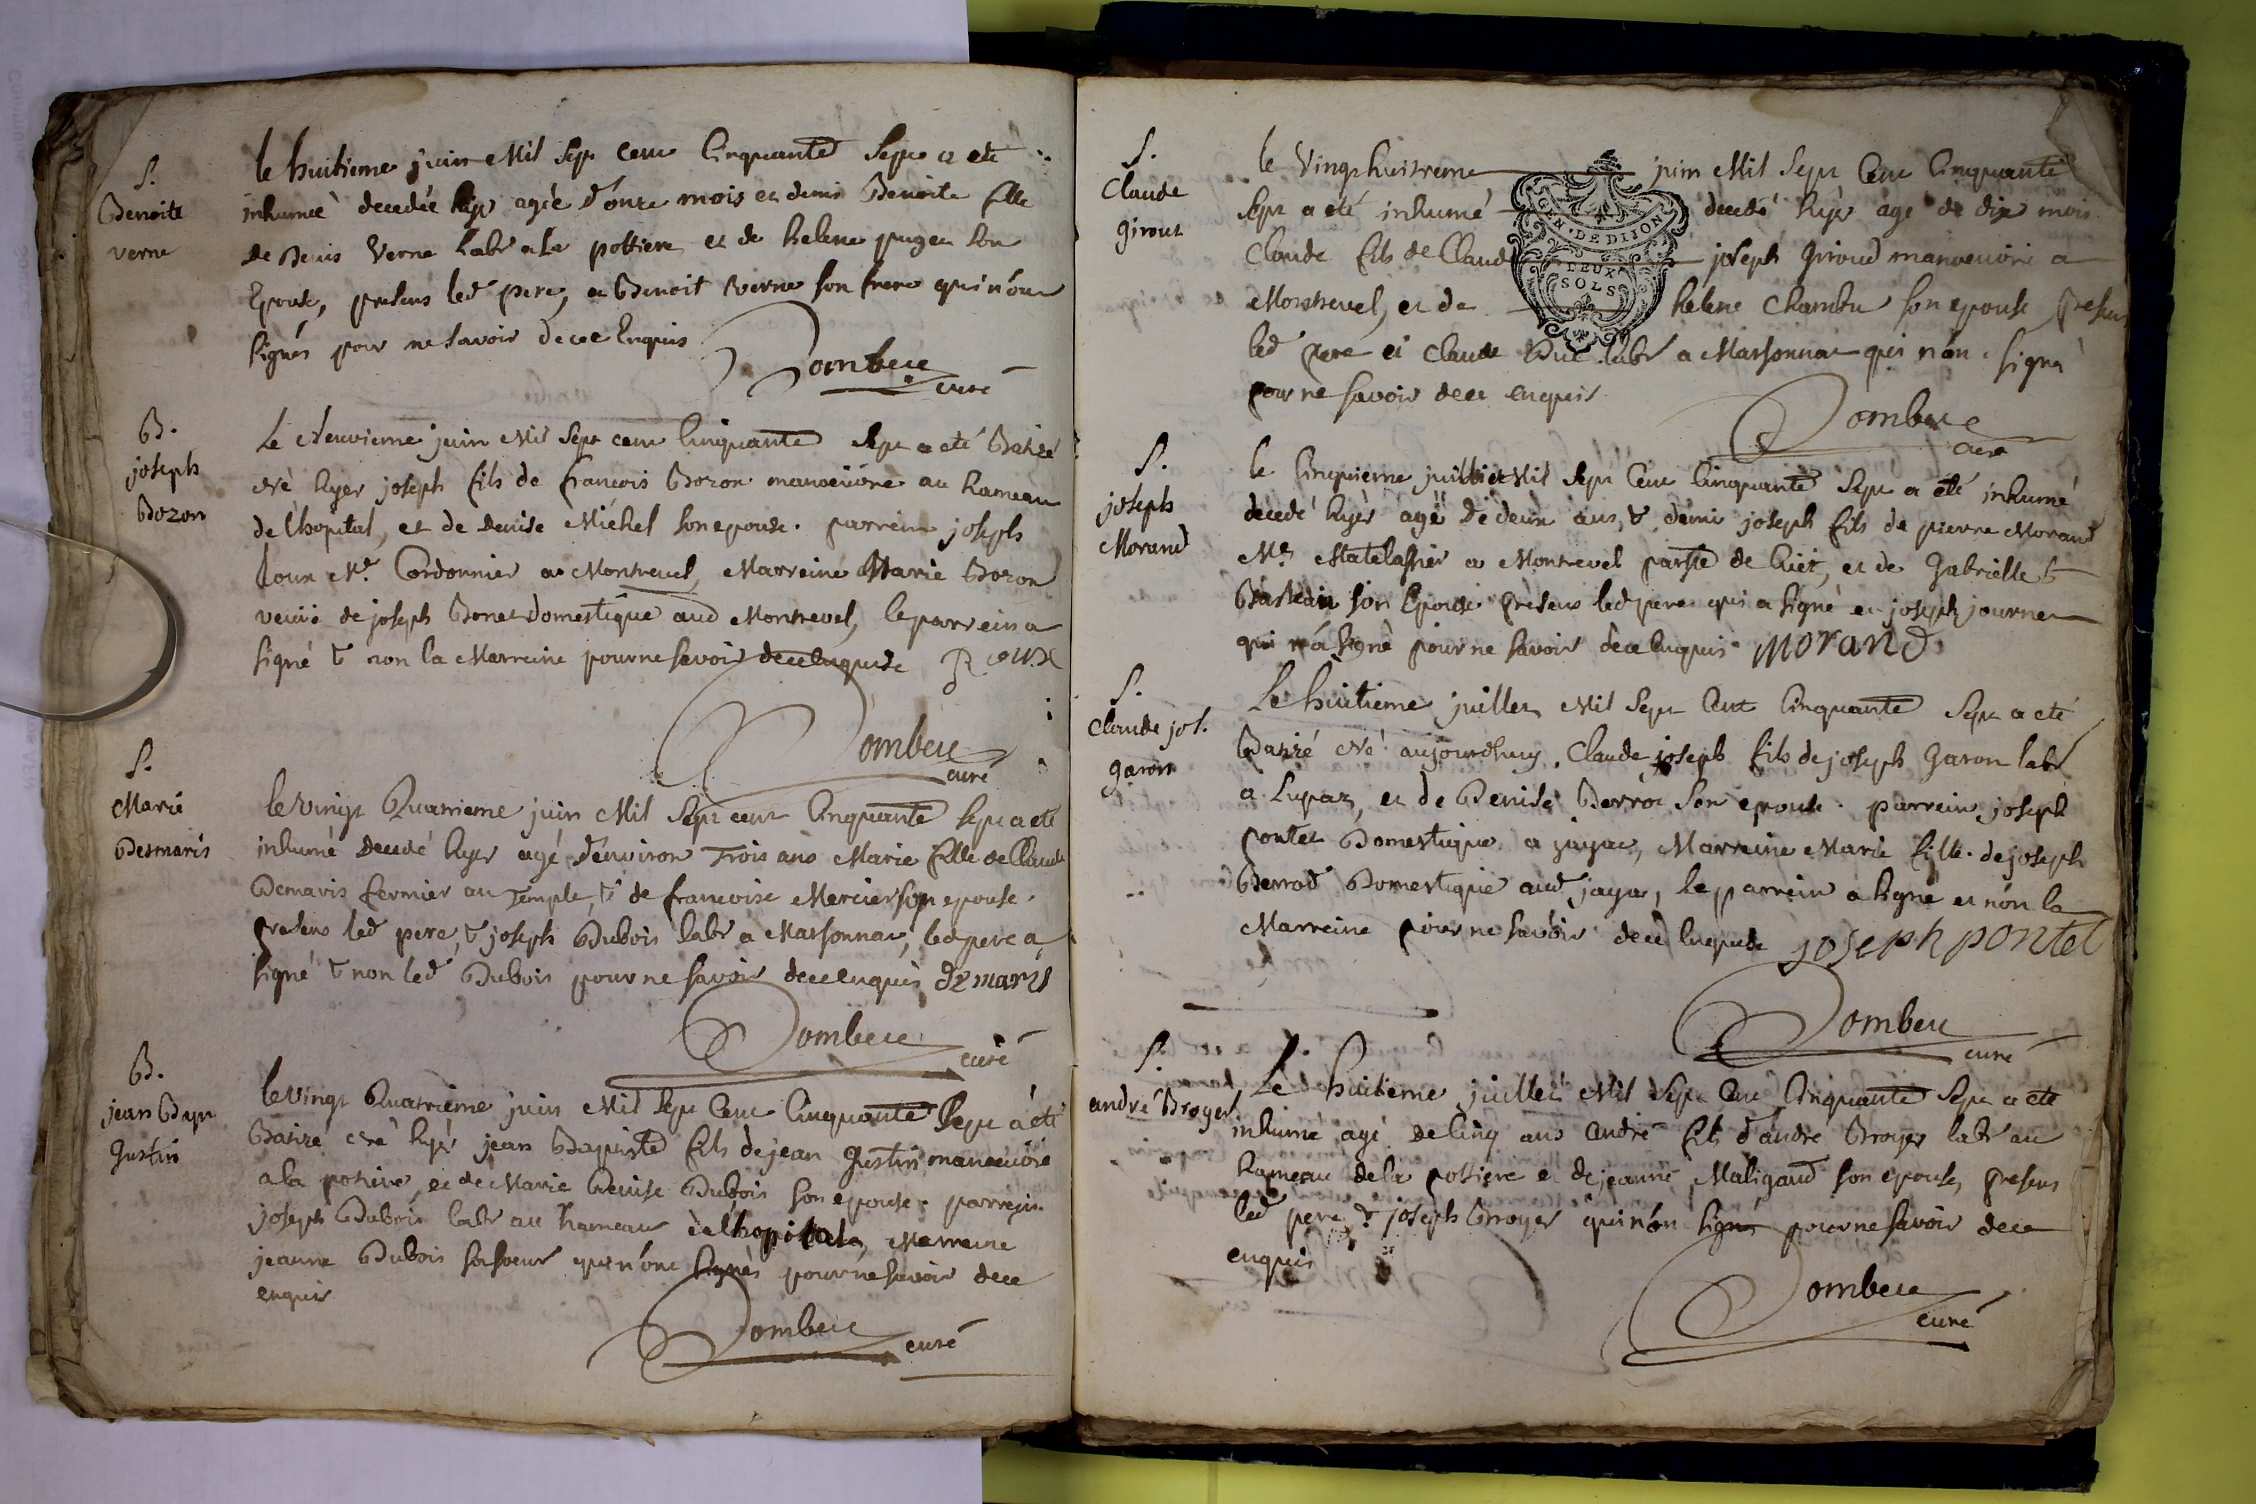 S.
Benoite
verne
le huitieme juin Mil Sept cent Cinquante Sept a eté
inhumeé decedeé hyer agèe d'onze mois et demi Benoite fille
de Denis Verne labr a la pottiere et de helene puget son
Epouse, presens led pere, et Benoit Verne son frere qui n'ont
signés pour ne savoir de ce Enquis
Dombeie
curé
B.
joseph
Bozon
Le Neuvieme juin Mil Sept cent Cinquante Sept a eté Batizé
Né hyer joseph fils de francois Bozon manoeuvre au hameau
de l'hopital, et de Denise Michel son epouse. parrein joseph
Roux Me Cordonnier a Montrevel, Marreine Marie Bozon
veuve de joseph Bonet domestique aud Montrevel, le parrein a
signé & non la Marreine pour ne savoir de ce enquise Roux
Dombeie
curé
S.
Marie
Desmaris
le Vingt Quatrieme juin Mil Sept cent Cinquante Sept a eté
inhumé decedé hyer agé d'environ Trois ans Marie fille de Claude
Demaris fermier au Temple, & de francoise Mercier son epouse.
presens led pere, & joseph Dubois labr a Marsonnat, led pere a
signé & non led Dubois pour ne savoir de ce enquis demaris
Dombeie
curé
B.
jean Bapt
Gustin
le Vingt Quatrieme juin Mil Sept Cent Cinquante Sept a eté
Batizé Né hyer jean Baptiste fils de jean Gustin manoeuvre
a la potiere, et de Marie Denise Dubois son epouse. parrein
joseph Dubois labr au hameau de lhopital, Marreine
jeanne Dubois sa soeur qui n'ont signés pour ne savoir de ce
enquis
Dombeie
curé
S.
Claude
giroux
le Vingt huitieme juin Mil Sept Cent Cinquante
Sept a eté inhumé decedé hyer age de dix mois
Claude fils de Claude joseph Giroud manoeuvre a
Montrevel, et de helene Chambu son epouse presens
led pere et Claude Duc labr a Marsonnat qui n'ont signé
pour ne savoir de ce enquis
GEN · DE DIJON
DEUX
SOLS
Dombeie
curé
S.
joseph
Morand
le Cinquieme juilliet Mil Sept Cent Cinquante Sept a eté inhumé
decedé hyer agé de deux ans & demi joseph fils de pierre Morand
Me Matelassier a Montrevel parsse de Cuet, et de Gabrielle
son Epouse presens led pere qui a signé et joseph journet
qui n'a signé pour ne savoir de ce enquis morand
S.
Claude jos.
garon
Le huitieme juillet Mil Sept Cent Cinquante Sept a eté
Batizé Né aujourdhuy, Claude joseph fils de joseph Garon labr
a Lupaz, et de Denise Berrot son epouse. parrein joseph
pontet Domestique a jayat, Marreine Marie fille de joseph
Berrod Domestique aud jayat, le parrein a signé et non la
Marreine pour ne savoir de ce enquise joseph pontet
Dombeie
curé
S.
andré Broyer
Le huitieme juillet Mil Sept Cent Cinquante Sept a eté
inhumé agé de Cinq ans andré fils d'andré Broyer labr au
hameau de la pottiere et de jeanne Maligaud son epouse, presens
led pere & joseph Broyer qui n'ont signés pour ne savoir de ce
enquis
Dombeie
curé